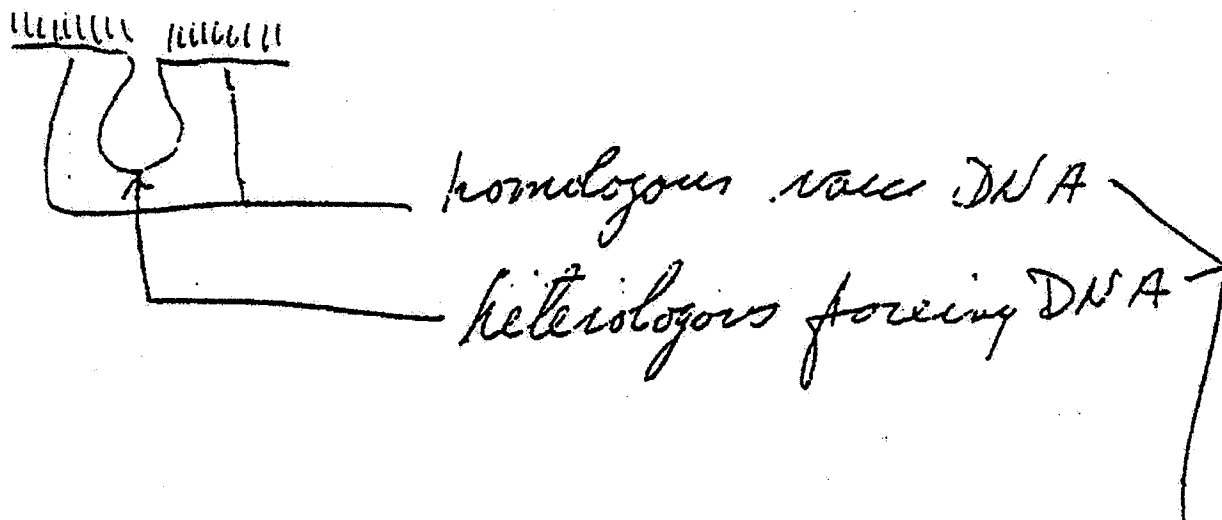 homologous vacc DNA
heterologous foreing DNA